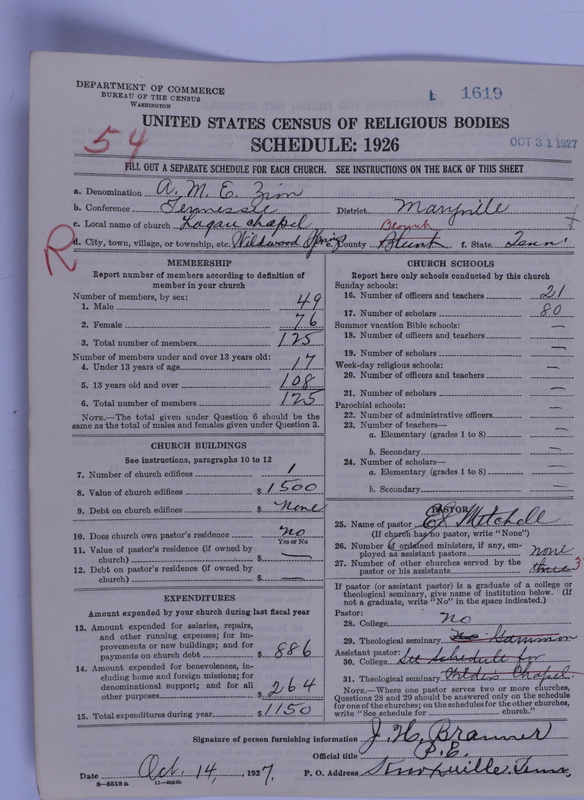 DEPARTMENT OF COMMERCE
BUREAU OF THE CENSUS
WASHINGTON
1619
54
UNITED STATES CENSUS OF RELIGIOUS BODIES
SCHEDULE: 1926
OCT 31 1927
FILL OUT A SEPARATE SCHEDULE FOR EACH CHURCH. SEE INSTRUCTIONS ON THE BACK OF THIS SHEET
a. Denomination A. M. E. Zion
b. Conference Tennessee District Maryville
c. Local name of church Logan Chapel
R
d. City, town, village, or township, etc. Wildwood Springs County Blunt f. State Tenn.
MEMBERSHIP
Report number of members according to definition of
member in your church
Number of members, by sex:
1. Male 49
2. Female 76
3. Total number of members 125
Number of members under and over 13 years old:
4. Under 13 years of age 17
5. 13 years old and over 108
6. Total number of members 125
NOTE.—The total given under Question 6 should be the
same as the total of males and females given under Question 3.
CHURCH BUILDINGS
See instructions, paragraphs 10 to 12
7. Number of church edifices 1
8. Value of church edifices $ 1500
9. Debt on church edifices $ None
10. Does church own pastor's residence? no
Yes or No
11. Value of pastor's residence (if owned by
church) $ —
12. Debt on pastor's residence (if owned by
church) $ —
EXPENDITURES
Amount expended by your church during last fiscal year
13. Amount expended for salaries, repairs,
and other running expenses; for im-
provements or new buildings; and for
payments on church debt $ 886
14. Amount expended for benevolences, in-
cluding home and foreign missions; for
denominational support; and for all
other purposes $ 264
15. Total expenditures during year $ 1150
CHURCH SCHOOLS
Report here only schools conducted by this church
Sunday schools:
16. Number of officers and teachers 21
17. Number of scholars 80
Summer vacation Bible schools: —
18. Number of officers and teachers
19. Number of scholars —
Week-day religious schools: —
20. Number of officers and teachers
21. Number of scholars —
Parochial schools:
22. Number of administrative officers —
23. Number of teachers—
a. Elementary (grades 1 to 8) —
b. Secondary —
24. Number of scholars—
a. Elementary (grades 1 to 8) —
b. Secondary —
PASTOR
25. Name of pastor Mitchell
(If church has no pastor, write "None")
26. Number of ordained ministers, if any, em-
ployed as assistant pastors none
27. Number of other churches served by the
pastor or his assistants three 3
If pastor (or assistant pastor) is a graduate of a college or
theological seminary, give name of institution below. (If
not a graduate, write "No" in the space indicated.)
Pastor:
28. College no
29. Theological seminary No Gammon
Assistant pastor:
30. College See Schedule for
31. Theological seminary Chapel
NOTE.—Where one pastor serves two or more churches,
Questions 28 and 29 should be answered only on the schedule
for one of the churches; on the schedules for the other churches,
write "See schedule for church."
Signature of person furnishing information J. H. Branner
Official title P. E.
Date Oct. 14, 1927. P. O. Address Knoxville, Tenn.
8—5518 a